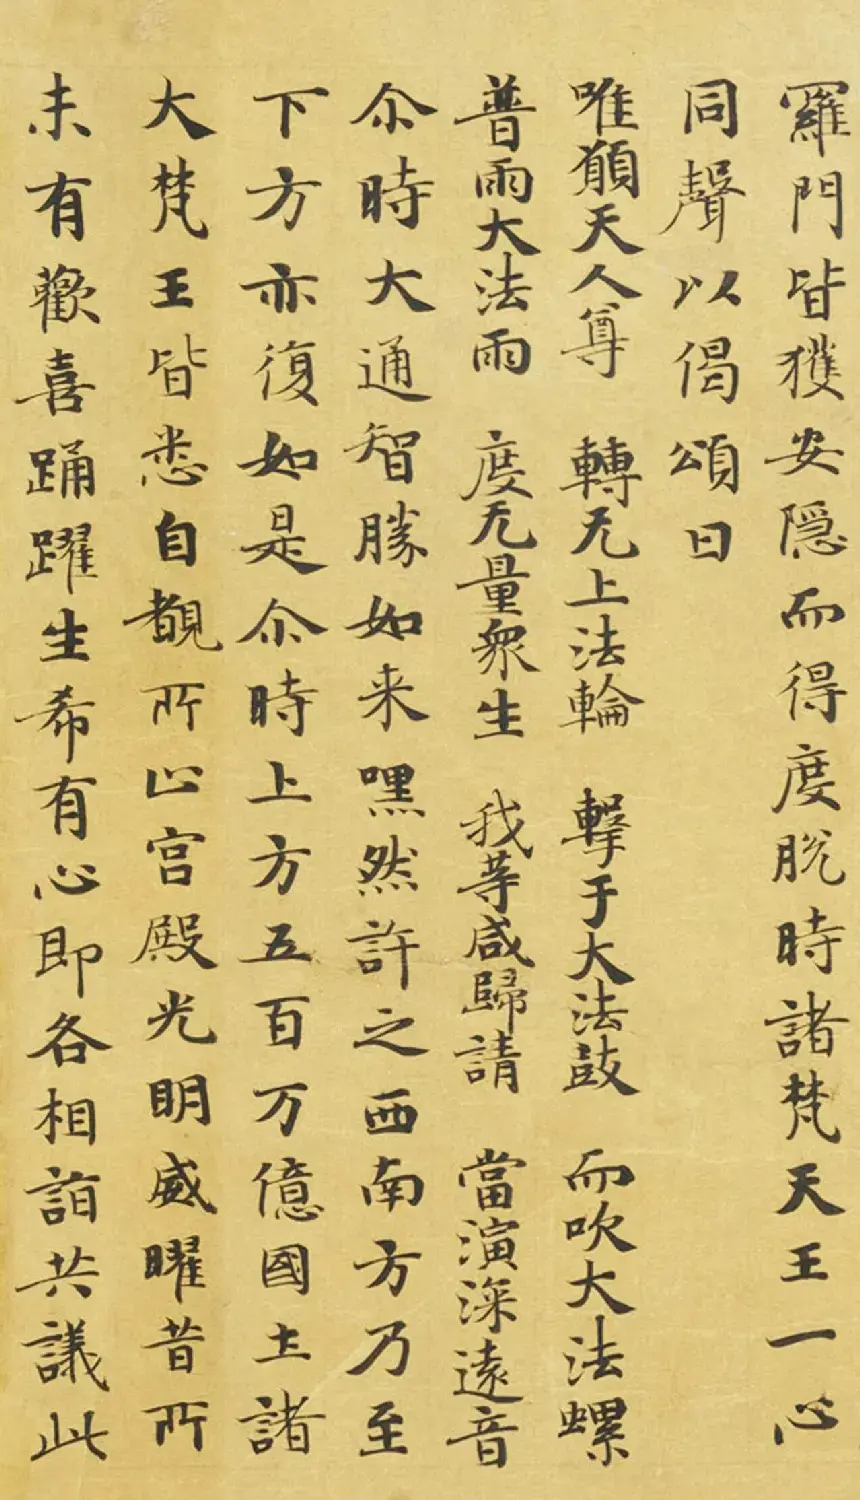 羅門皆獲安隠而得度脫時諸梵天王一心
同聲以偈頌曰
唯願天人尊 轉无上法輪 擊于大法鼓 而吹大法螺
普雨大法雨 度无量衆生 我等咸歸請 當演深遠音
尒時大通智勝如来嘿然許之西南方乃至
下方亦復如是尒時上方五百万億國土諸
大梵王皆悉自覩所止宮殿光明威曜昔所
未有歡喜踊躍生希有心即各相詣共議此